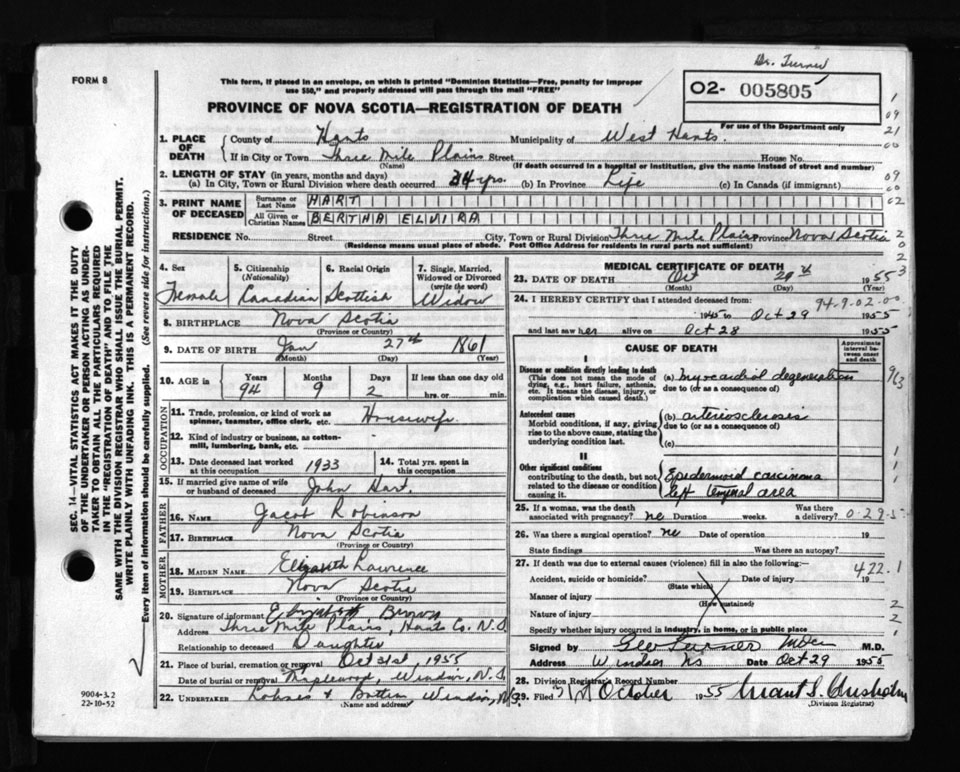 Dr. Turner
FORM 8
This form, if placed in an envelope, on which is printed "Dominion Statistics—Free, penalty for improper
use $50," and properly addressed will pass through the mail "FREE"
O2- 005805
For use of the Department only
PROVINCE OF NOVA SCOTIA—REGISTRATION OF DEATH
1. PLACE OF DEATH
County of Hants Municipality of West Hants.
If in City or Town Three Mile Plains Street House No.
(Name) (If death occurred in a hospital or institution, give the name instead of street and number)
2. LENGTH OF STAY (in years, months and days)
(a) In City, Town or Rural Division where death occurred 34 yrs. (b) In Province Life (c) In Canada (if immigrant)
3. PRINT NAME OF DECEASED
Surname or Last Name HART
All Given or Christian Names BERTHA ELVIRA
RESIDENCE No. Street City, Town or Rural Division Three Mile Plains Province Nova Scotia
(Residence means usual place of abode. Post Office Address for residents in rural parts not sufficient)
4. Sex Female
5. Citizenship (Nationality) Canadian
6. Racial Origin Scottish
7. Single, Married, Widowed or Divorced (write the word) Widow
8. BIRTHPLACE Nova Scotia
(Province or Country)
9. DATE OF BIRTH Jan 27th 1861
(Month) (Day) (Year)
10. AGE in Years Months Days If less than one day old
94 9 2 hrs. or min.
OCCUPATION
11. Trade, profession, or kind of work as spinner, teamster, office clerk, etc. Housewife
12. Kind of industry or business, as cotton-mill, lumbering, bank, etc.
13. Date deceased last worked at this occupation 1933
14. Total yrs. spent in this occupation
15. If married give name of wife or husband of deceased John Hart.
FATHER
16. NAME Jacob Robinson
17. BIRTHPLACE Nova Scotia
(Province or Country)
MOTHER
18. MAIDEN NAME Elizabeth Lawrence
19. BIRTHPLACE Nova Scotia
(Province or Country)
20. Signature of informant Elizabeth
Address Three Mile Plains, Hants Co. N.S.
Relationship to deceased Daughter
21. Place of burial, cremation or removal Oct 31st, 1955
Date of burial or removal Maplewood, Windsor, N.S.
22. UNDERTAKER Windsor, N.S.
(Name and address)
MEDICAL CERTIFICATE OF DEATH
23. DATE OF DEATH Oct 29th 1955
(Month) (Day)
24. I HEREBY CERTIFY that I attended deceased from:
94-9-02-00
1945 to Oct 29 1955
and last saw her alive on Oct 28 1955
CAUSE OF DEATH
Approximate interval between onset and death
I
Disease or condition directly leading to death
(This does not mean the mode of dying, e.g., heart failure, asthenia, etc. It means the disease, injury, or complication which caused death.)
(a) myocardial degeneration
due to (or as a consequence of)
Antecedent causes
Morbid conditions, if any, giving rise to the above cause, stating the underlying condition last.
(b) arteriosclerosis
due to (or as a consequence of)
(c)
II
Other significant conditions
contributing to the death, but not related to the disease or condition causing it.
Epidermoid carcinoma
left temporal area
25. If a woman, was the death associated with pregnancy? no Duration weeks. Was there a delivery?
26. Was there a surgical operation? no Date of operation 19
State findings Was there an autopsy?
27. If death was due to external causes (violence) fill in also the following:—
422.1
Accident, suicide or homicide? Date of injury 19
(State which)
Manner of injury
(How sustained)
Nature of injury
Specify whether injury occurred in industry, in home, or in public place
Signed by Geo Turner M.D.
Address Windsor NS Date Oct 29 1955
28. Division Registrar's Record Number
29. Filed 31st October 1955
(Division Registrar)
SEC. 14—VITAL STATISTICS ACT MAKES IT THE DUTY
OF THE UNDERTAKER OR PERSON ACTING AS UNDERTAKER
TO OBTAIN ALL THE PARTICULARS REQUIRED
IN THE "REGISTRATION OF DEATH" AND TO FILE THE
SAME WITH THE DIVISION REGISTRAR WHO SHALL ISSUE THE BURIAL PERMIT.
WRITE PLAINLY WITH UNFADING INK. THIS IS A PERMANENT RECORD.
Every item of information should be carefully supplied. (See reverse side for instructions.)
9004-3.2
22-10-52